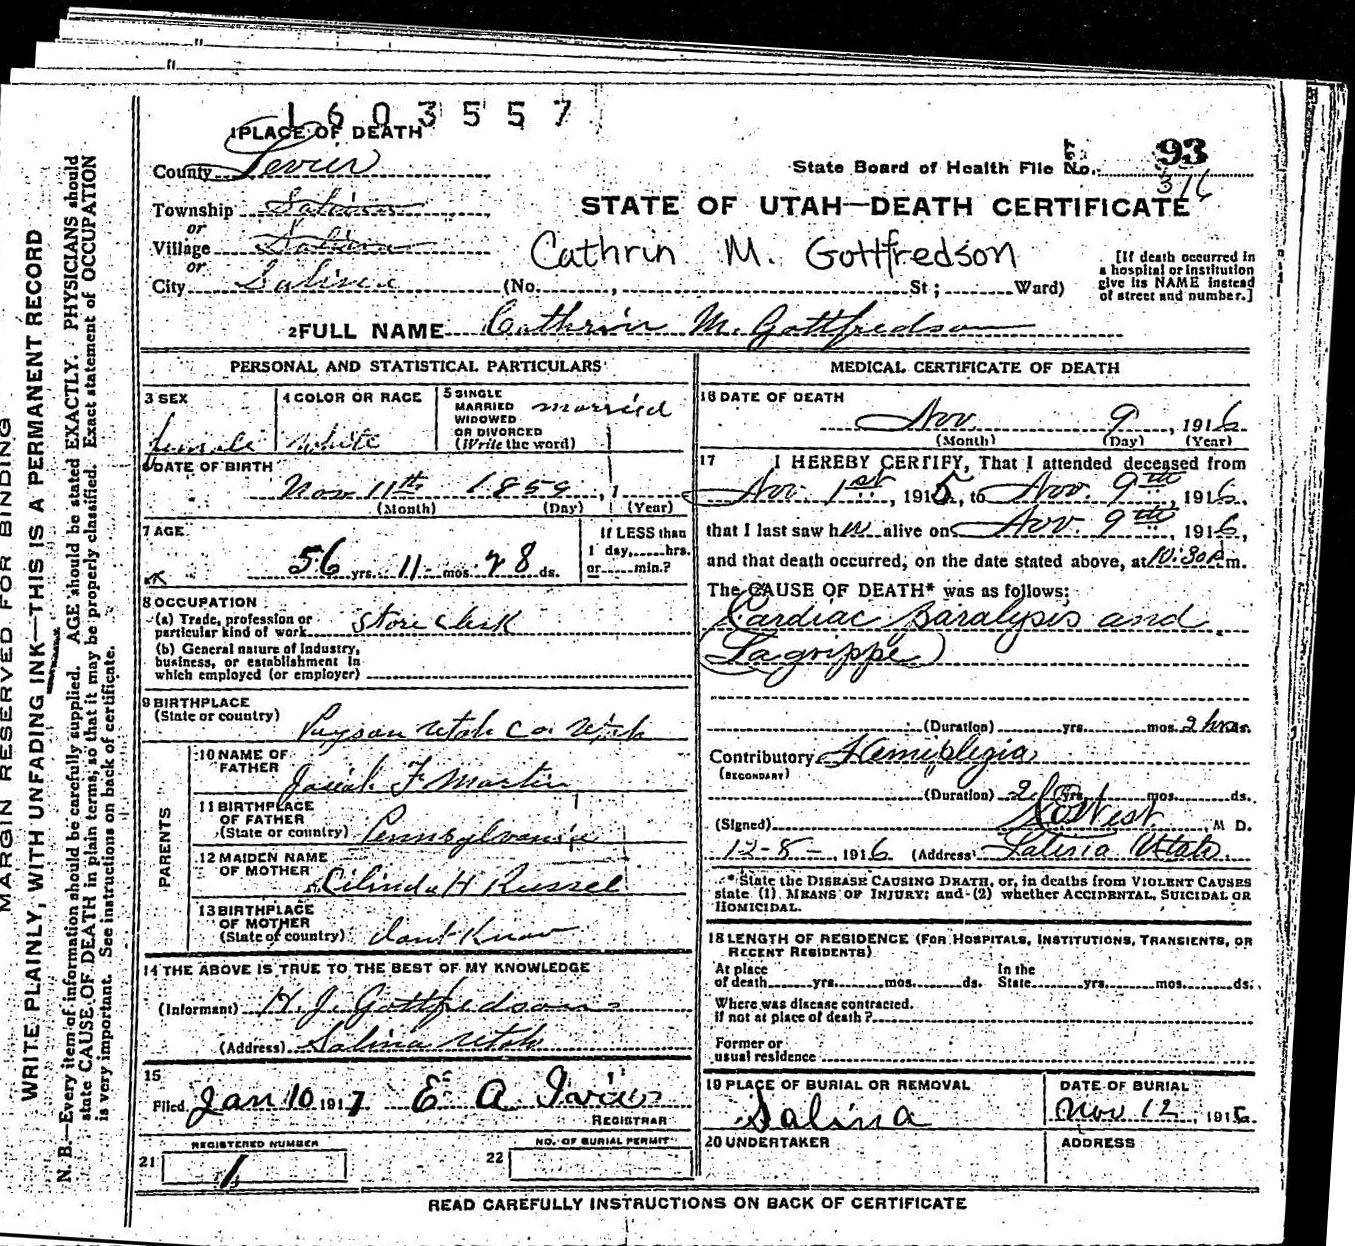 1603557
1 PLACE OF DEATH
County Sevier
Township Salina
or
Village Salina
or
City Salina (No. , St; Ward)
State Board of Health File No. 93
316
STATE OF UTAH—DEATH CERTIFICATE
Cathrin M. Gottfredson
[If death occurred in
a hospital or institution
give its NAME instead
of street and number.]
2 FULL NAME Cathrin M. Gottfredson
PERSONAL AND STATISTICAL PARTICULARS
3 SEX
female
4 COLOR OR RACE
White
5 SINGLE
MARRIED
WIDOWED
OR DIVORCED
(Write the word)
married
6 DATE OF BIRTH
Nov 11th 1859, 1
(Month) (Day) (Year)
7 AGE
56 yrs. 11 mos. 28 ds.
If LESS than
1 day, hrs.
or min.?
8 OCCUPATION
(a) Trade, profession or
particular kind of work Store clerk
(b) General nature of Industry,
business, or establishment in
which employed (or employer)
9 BIRTHPLACE
(State or country) Payson Utah Co. Utah
PARENTS
10 NAME OF
FATHER Josiah F. Martin
11 BIRTHPLACE
OF FATHER
(State or country) Pennsylvania
12 MAIDEN NAME
OF MOTHER H Russel
13 BIRTHPLACE
OF MOTHER
(State or country) dont Know
14 THE ABOVE IS TRUE TO THE BEST OF MY KNOWLEDGE
(Informant) H. J. Gottfredson
(Address) Salina Utah
15
Filed Jan 10 1917 E A
REGISTRAR
REGISTERED NUMBER
21 1
NO. OF BURIAL PERMIT
22
MEDICAL CERTIFICATE OF DEATH
16 DATE OF DEATH
Nov. 9, 1916
(Month) (Day) (Year)
17 I HEREBY CERTIFY, That I attended deceased from
Nov. 1st, 1915, to Nov. 9th, 1916,
that I last saw her alive on Nov. 9th, 1916,
and that death occurred, on the date stated above, at 10:30 P.m.
The CAUSE OF DEATH* was as follows:
Cardiac Paralysis and
(Lagrippe)
(Duration) yrs. mos. 2 hrs ds.
Contributory Hemiplegia
(SECONDARY)
(Duration) 2 yrs. mos. ds.
(Signed) West M D.
12-8-, 1916 (Address) Salina Utah.
* State the DISEASE CAUSING DEATH, or, in deaths from VIOLENT CAUSES
state (1) MEANS OF INJURY; and (2) whether ACCIDENTAL, SUICIDAL OR
HOMICIDAL.
18 LENGTH OF RESIDENCE (FOR HOSPITALS, INSTITUTIONS, TRANSIENTS, OR
RECENT RESIDENTS)
At place
of death yrs. mos. ds.
In the
State yrs. mos. ds.
Where was disease contracted.
if not at place of death?
Former or
usual residence
19 PLACE OF BURIAL OR REMOVAL
Salina
DATE OF BURIAL
Nov 12, 1916
20 UNDERTAKER
ADDRESS
READ CAREFULLY INSTRUCTIONS ON BACK OF CERTIFICATE
MARGIN RESERVED FOR BINDING
WRITE PLAINLY, WITH UNFADING INK—THIS IS A PERMANENT RECORD
N. B.—Every item of information should be carefully supplied. AGE should be stated EXACTLY. PHYSICIANS should
state CAUSE OF DEATH in plain terms, so that it may be properly classified. Exact statement of OCCUPATION
is very important. See instructions on back of certificate.